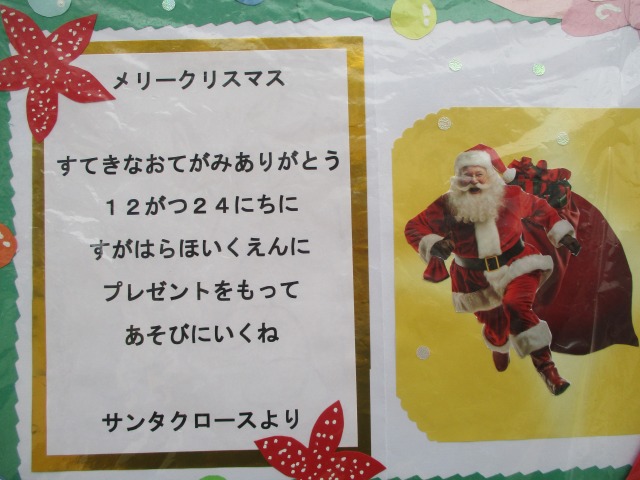 メリークリスマス
すてきなおてがみありがとう
１２がつ２４にちに
すがはらほいくえんに
プレゼントをもって
あそびにいくね
サンタクロースより